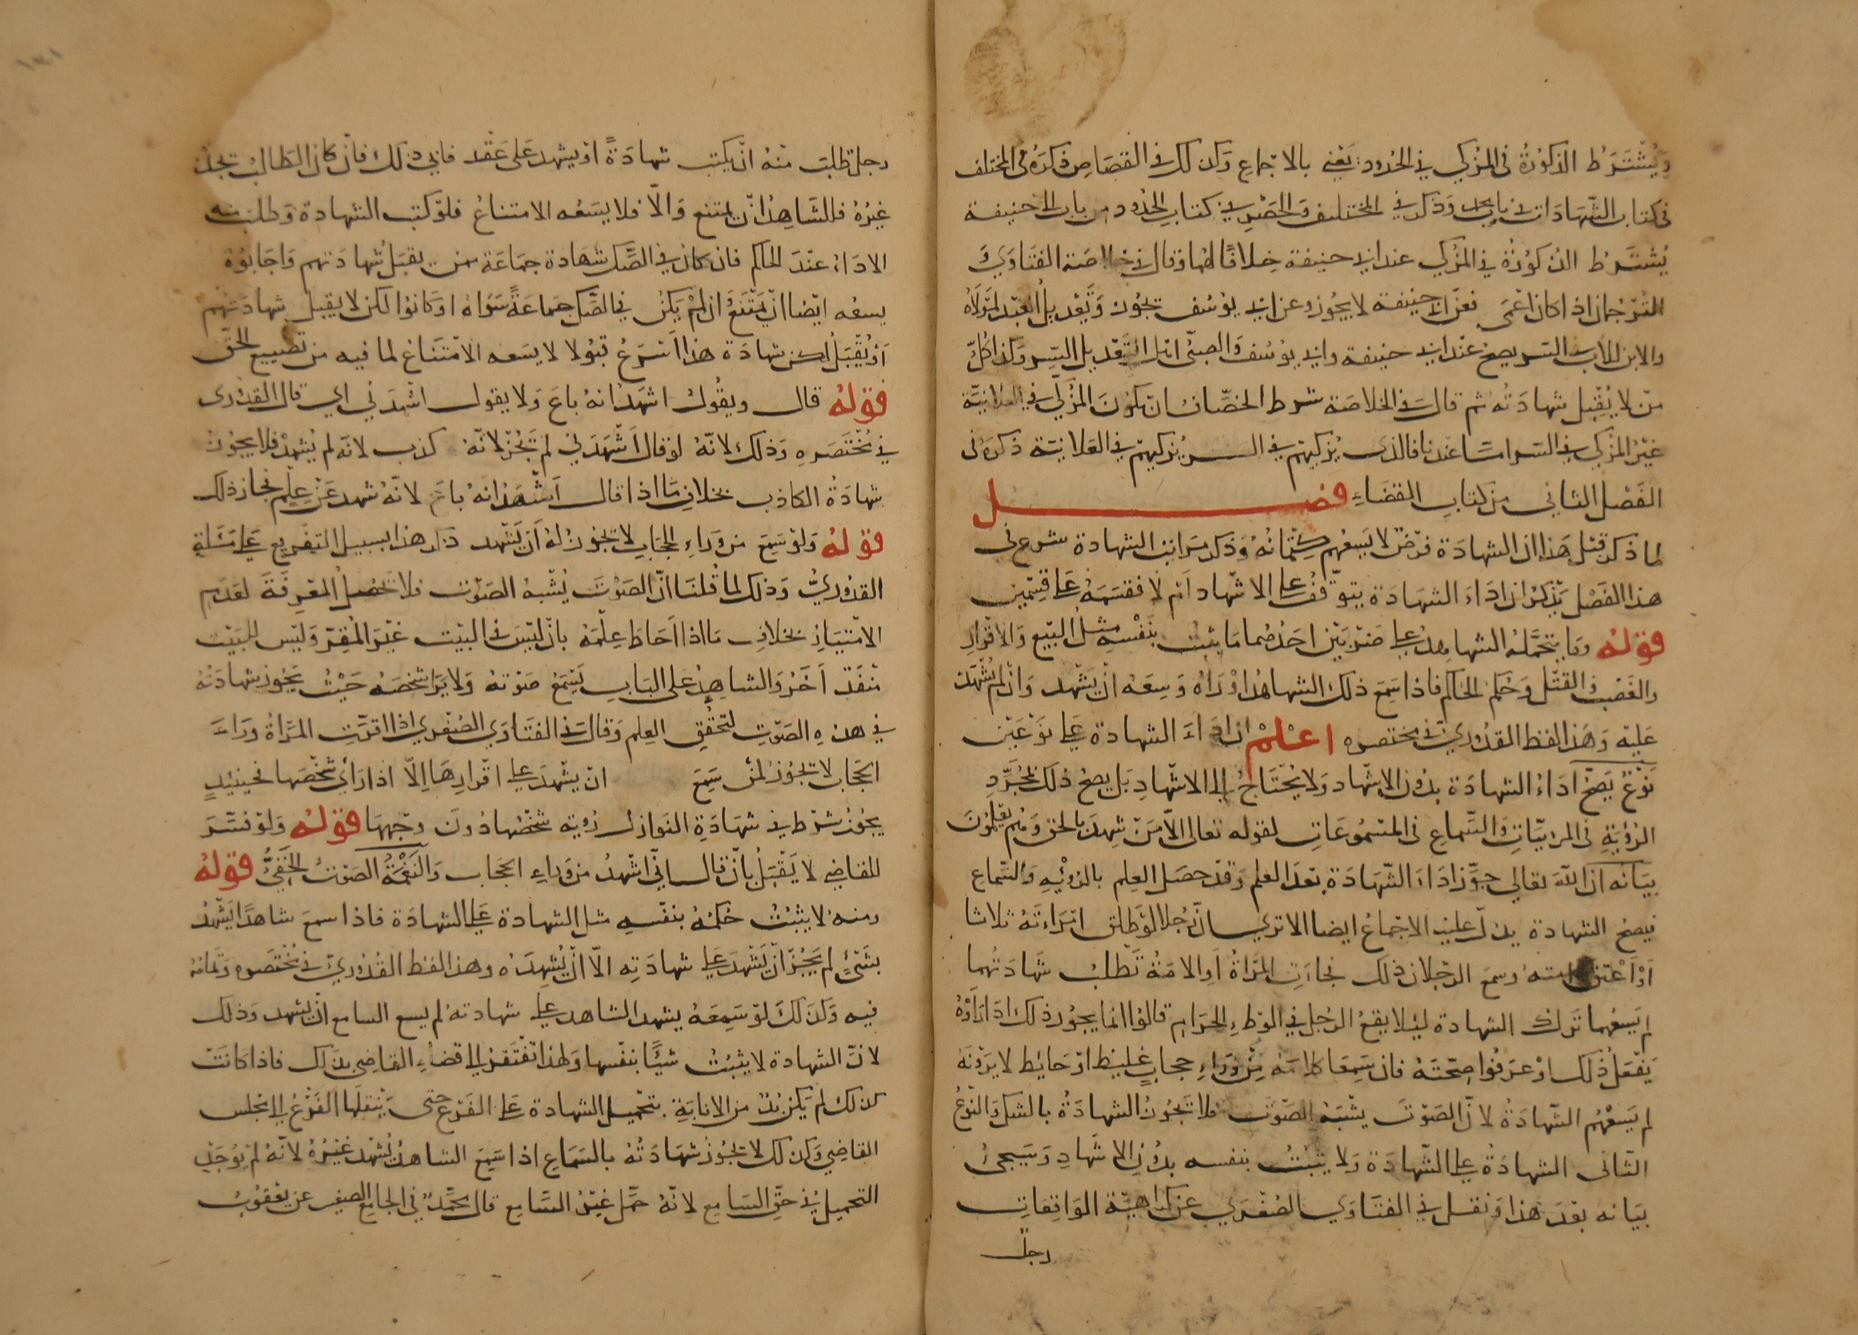 ويشترط الذكورة في المزكي في الحدود يعني بالاجماع وكذلك في القصاص ذكره في المختلف
في كتاب الشهادات في باب محمد وذكر في المختلف والحصر في كتاب الحدود من باب ابي حنيفة
يشترط الذكورة في المزكي عند ابي حنيفة خلافا لهما وقال في خلاصة الفتاوى
الترجمان اذا كان اعمى فعن ابي حنيفة لا يجوز وعن ابي يوسف يجوز وتعديل العبد لمولاه
والابن للاب السر يصح عند ابي حنيفة وابي يوسف والصبي اهل التعديل السر وكذا كل
من لا يقبل شهادته ثم قال في الخلاصة شرط الخصاف ان يكون المزكي في العلانية
غير المزكي في السر اما عندنا فالذي يزكيهم في السر يزكيهم في العلانية ذكره في
الفصل الثاني من كتاب القضاء فصل
لما ذكر قبل هذا ان الشهادة فرض لا يسعهم كتمانه وذكر مراتب الشهادة شرع في
هذا الفصل يذكر ان اداء الشهادة يتوقف على الاشهاد ام لا فقسمه على قسمين
قوله وما يتحمله الشاهد على ضربين احدهما ما يثبت بنفسه مثل البيع والاقرار
والغصب والقتل وحكم الحاكم فاذا سمع ذلك الشاهد او راه وسعه ان يشهد وان لم يشهد
عليه وهذا لفظ القدوري في مختصره اعلم ان اداء الشهادة على نوعين
نوع يصح اداء الشهادة بدون الاشهاد ولا يحتاج الى الاشهاد بل يصح ذلك بمجرد
الرؤية في المرئيات والسماع في المسموعات لقوله تعالى الا من شهد بالحق وهم يعلمون
بيانه ان الله تعالى جوز اداء الشهادة بعد العلم وقد حصل العلم بالرؤية والسماع
فيصح الشهادة يدل عليه الاجماع ايضا الا ترى ان رجلا لو طلق امراته ثلاثا
او اعتق امته وسمع الرجلان ذلك فجاءت المراة او الامة تطلب شهادتهما
لم يسعهما ترك الشهادة لئلا يقع الرجل في الوطء الحرام قالوا انما يجوز ذلك اذا راوه
يفعل ذلك او عرفوا صحته فان سمعا كلامه من وراء حجاب غليظ او حائط لا يرونه
لم يسعهم الشهادة لان الصوت يشبه الصوت فلا تجوز الشهادة بالشك والنوع
الثاني الشهادة على الشهادة ولا يثبت بنفسه بدون الاشهاد وسيجئ
بيانه بعد هذا ونقل في الفتاوى الصغرى عن كراهية الواقعات
رجل
رجل طلب منه ان يكتب شهادة او يشهد على عقد فابى ذلك فان كان الطالب يجد
غيره فللشاهد ان يمتنع والا فلا يسعه الامتناع فلو كتب الشهادة وطلب منه
الاداء عند الحاكم فان كان في الصك شهادة جماعة ممن يقبل شهادتهم واجابوه
يسعه ايضا ان يمتنع وان لم يكن في الصك جماعة سواه او كانوا لكن لا يقبل شهادتهم
او يقبل لكن شهادة هذا اسرع قبولا لا يسعه الامتناع لما فيه من تضييع الحق
قوله قال ويقول اشهد انه باع ولا يقول اشهدني اي قال القدوري
في مختصره وذلك لانه لو قال اشهدني لم تجز لانه كذب لانه لم يشهد فلا يجوز
شهادة الكاذب بخلاف ما اذا قال اشهد انه باع لانه شهد عن علم فجاز ذلك
قوله ولو سمع من وراء الحجاب لا تجوز له ان يشهد ذكر هذا بسبيل التفريع على مسئلة
القدوري وذلك لما قلنا ان الصوت يشبه الصوت فلا تحصل المعرفة لعدم
الامتياز بخلاف ما اذا احاط علمه بان ليس في البيت غير المقر وليس للبيت
منفذ آخر والشاهد على الباب يسمع صوته ولا يرى شخصه حيث يجوز شهادته
في هذه الصوت لتحقق العلم وقال في الفتاوى الصغرى اذا اقرت المراة وراء
الحجاب لا تجوز لمن سمع ان يشهد على اقرارها الا اذا راى شخصها فحينئذ
يجوز شرط في شهادة النوازل رؤية شخصها دون وجهها قوله ولو فسر
للقاضي لا يقبل بان قال اني اشهد من وراء الحجاب والنغمة الصوت الخفي قوله
ومنه لا يثبت حكمه بنفسه مثل الشهادة على الشهادة فاذا سمع شاهدا يشهد
بشئ لم يجز ان يشهد على شهادته الا ان يشهده وهذا لفظ القدوري في مختصره وتمامه
فيه وكذلك لو سمعه يشهد الشاهد على شهادته لم يسع السامع ان يشهد وذلك
لان الشهادة لا يثبت شيئا بنفسها ولهذا تفتقر الى قضاء القاضي بذلك فاذا كانت
كذلك لم يكن بد من الانابة بتحميل الشهادة على الفرع حتى ينقلها الفرع الى مجلس
القاضي وكذلك لا تجوز شهادته بالسماع اذا سمع الشاهد يشهد غيره لانه لم يوجد
التحميل في حق السامع لانه حمل غير السامع قال محمد في الجامع الصغير عن يعقوب